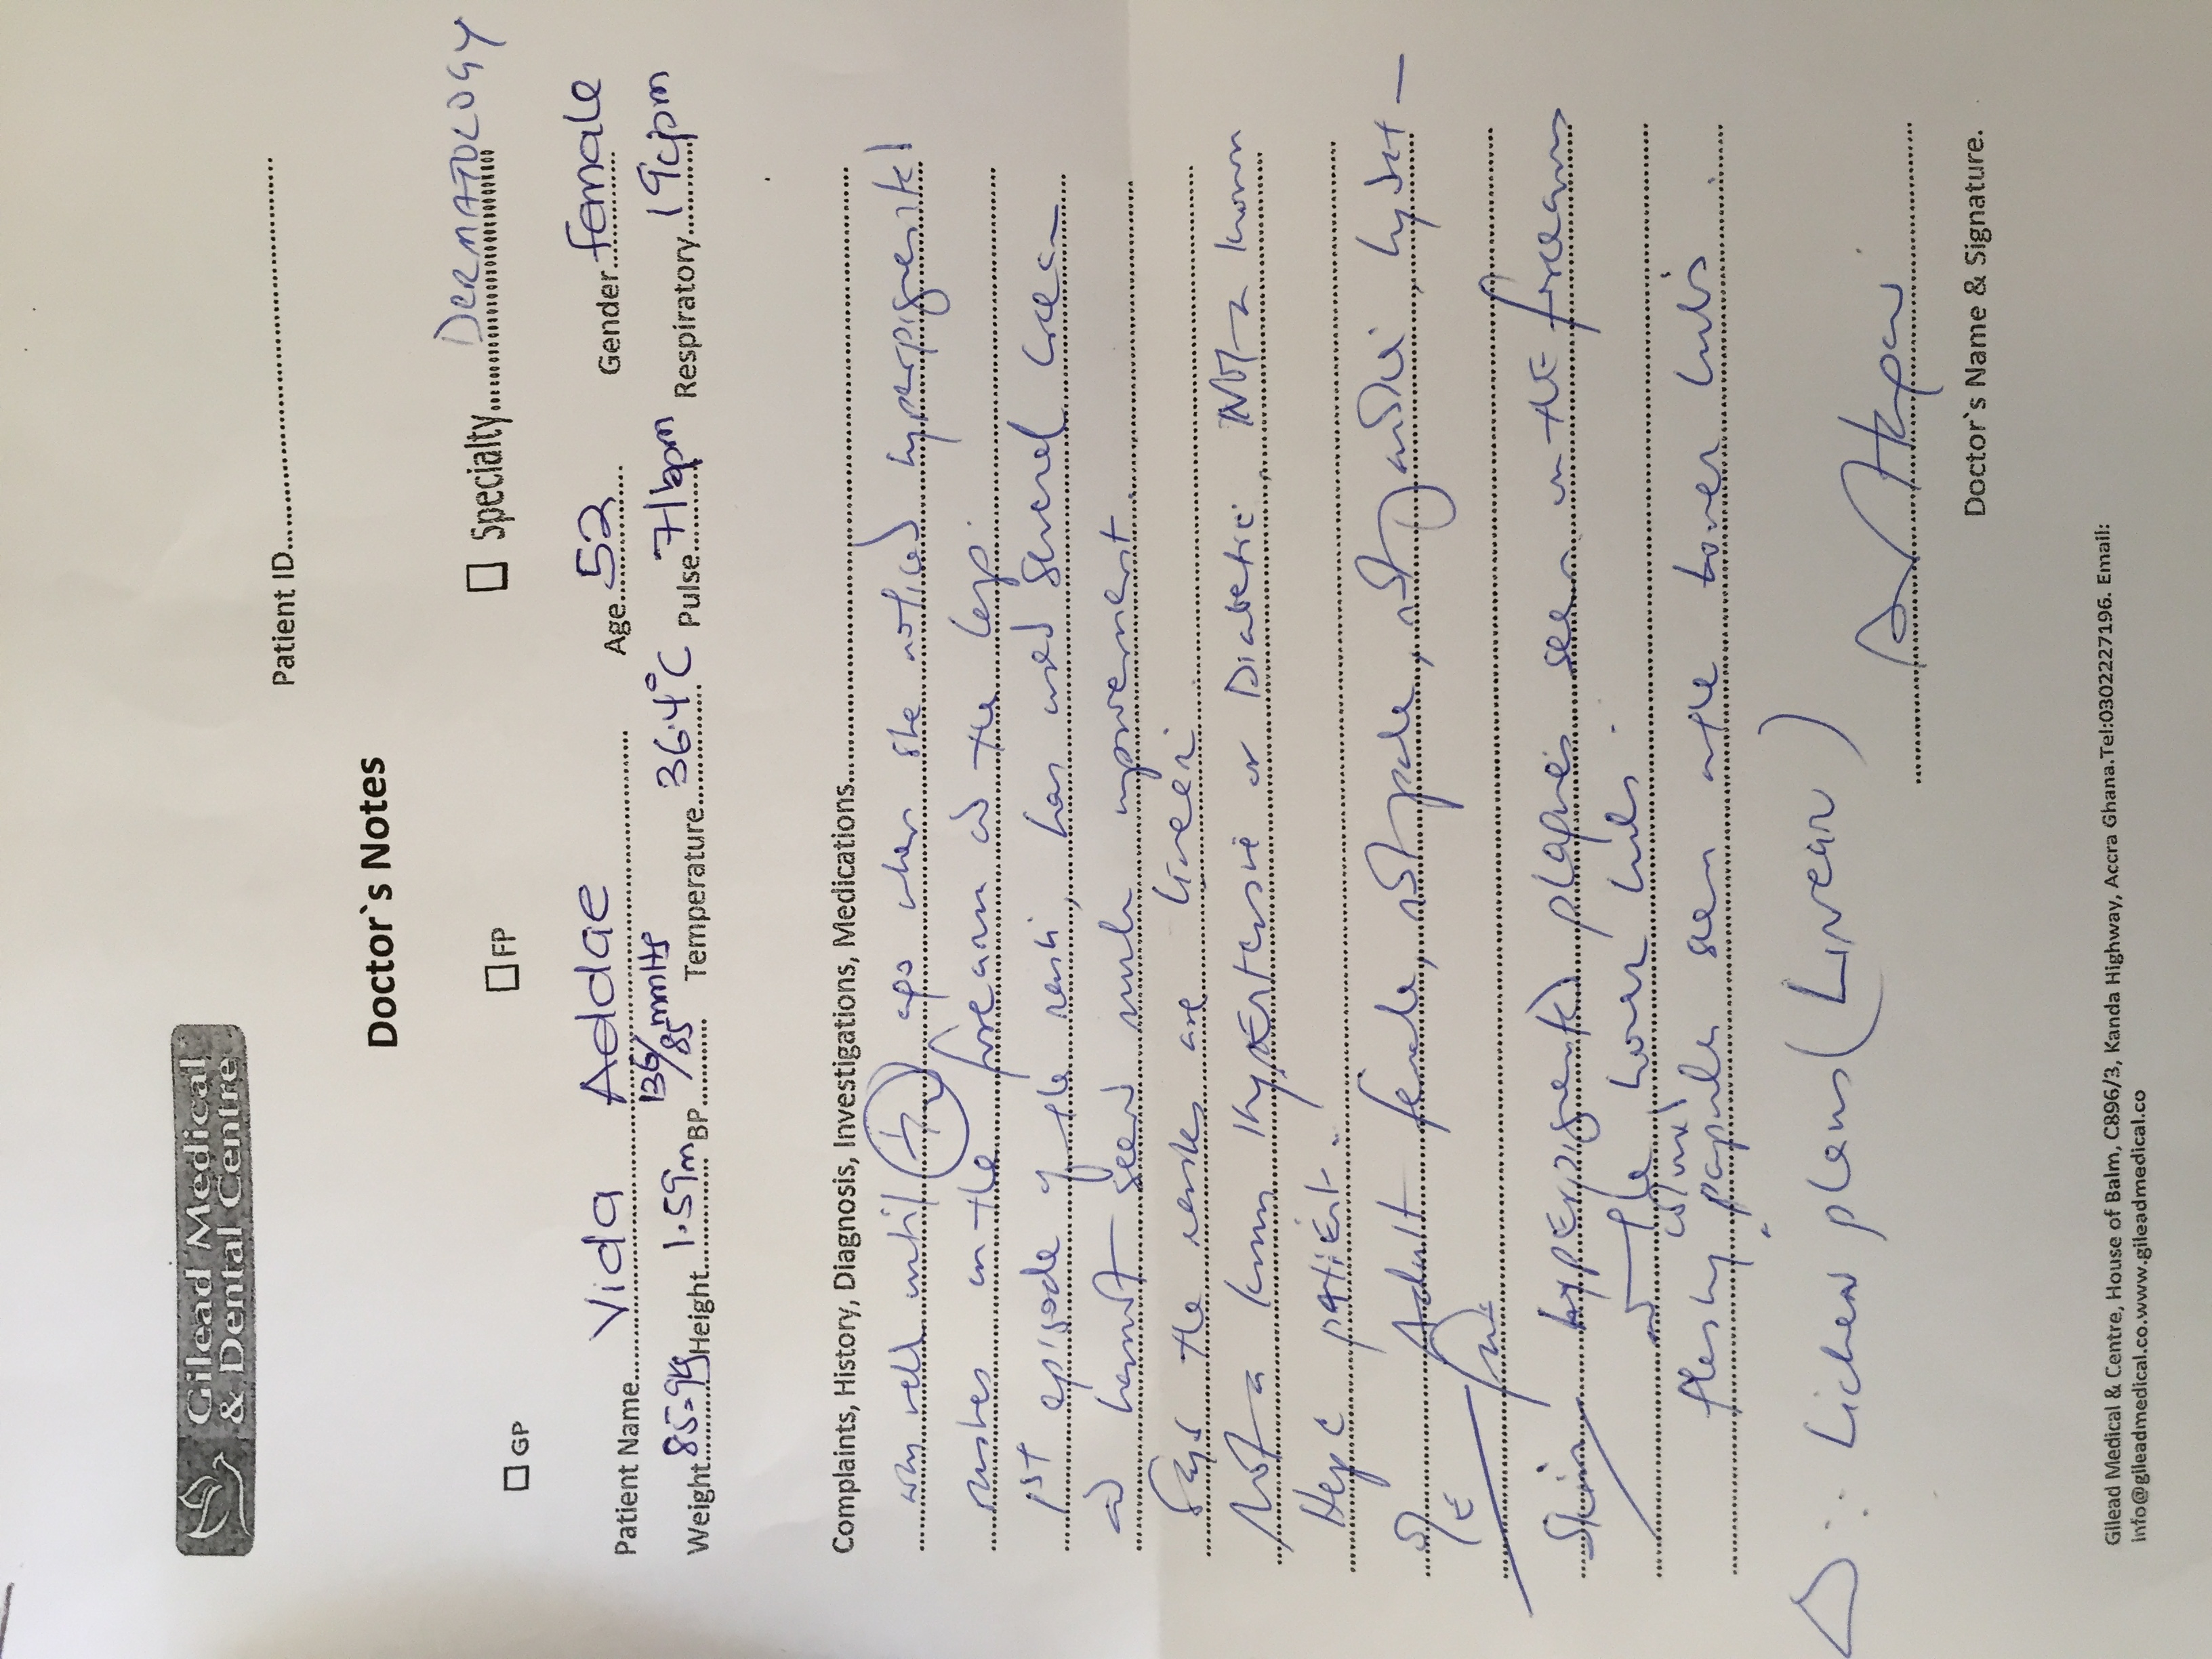 Gilead Medical
& Dental Centre
Patient ID..............................
Doctor`s Notes
GP FP Specialty DERMATOLOGY
Patient Name Vida Addae Age 52 Gender female
Weight 85.9kg Height 1.59m BP 136/85 mmHg Temperature 36.4°C Pulse 71bpm Respiratory 19cpm
Complaints, History, Diagnosis, Investigations, Medications
was well until ago when she noticed hyperpigmented
rashes on the forearm the legs.
1st episode of the rash, has used several cream
hasnot seen much improvement.
Says the rashes are linear.
Not a known Hypertensive or Diabetic. Not a known
Hep C patient.
O/E Adult female, not pale, not jaundice, hydrat-
Skin hyperpigmented plaques seen on the forearms
the lower limbs.
fleshy coloured papules seen on the lower limbs.
Δ: Lichen planus (Linear)
Doctor`s Name & Signature.
Gilead Medical & Centre, House of Balm, C896/3, Kanda Highway, Accra Ghana.Tel:0302227196. Email:
info@gileadmedical.co.www.gileadmedical.co